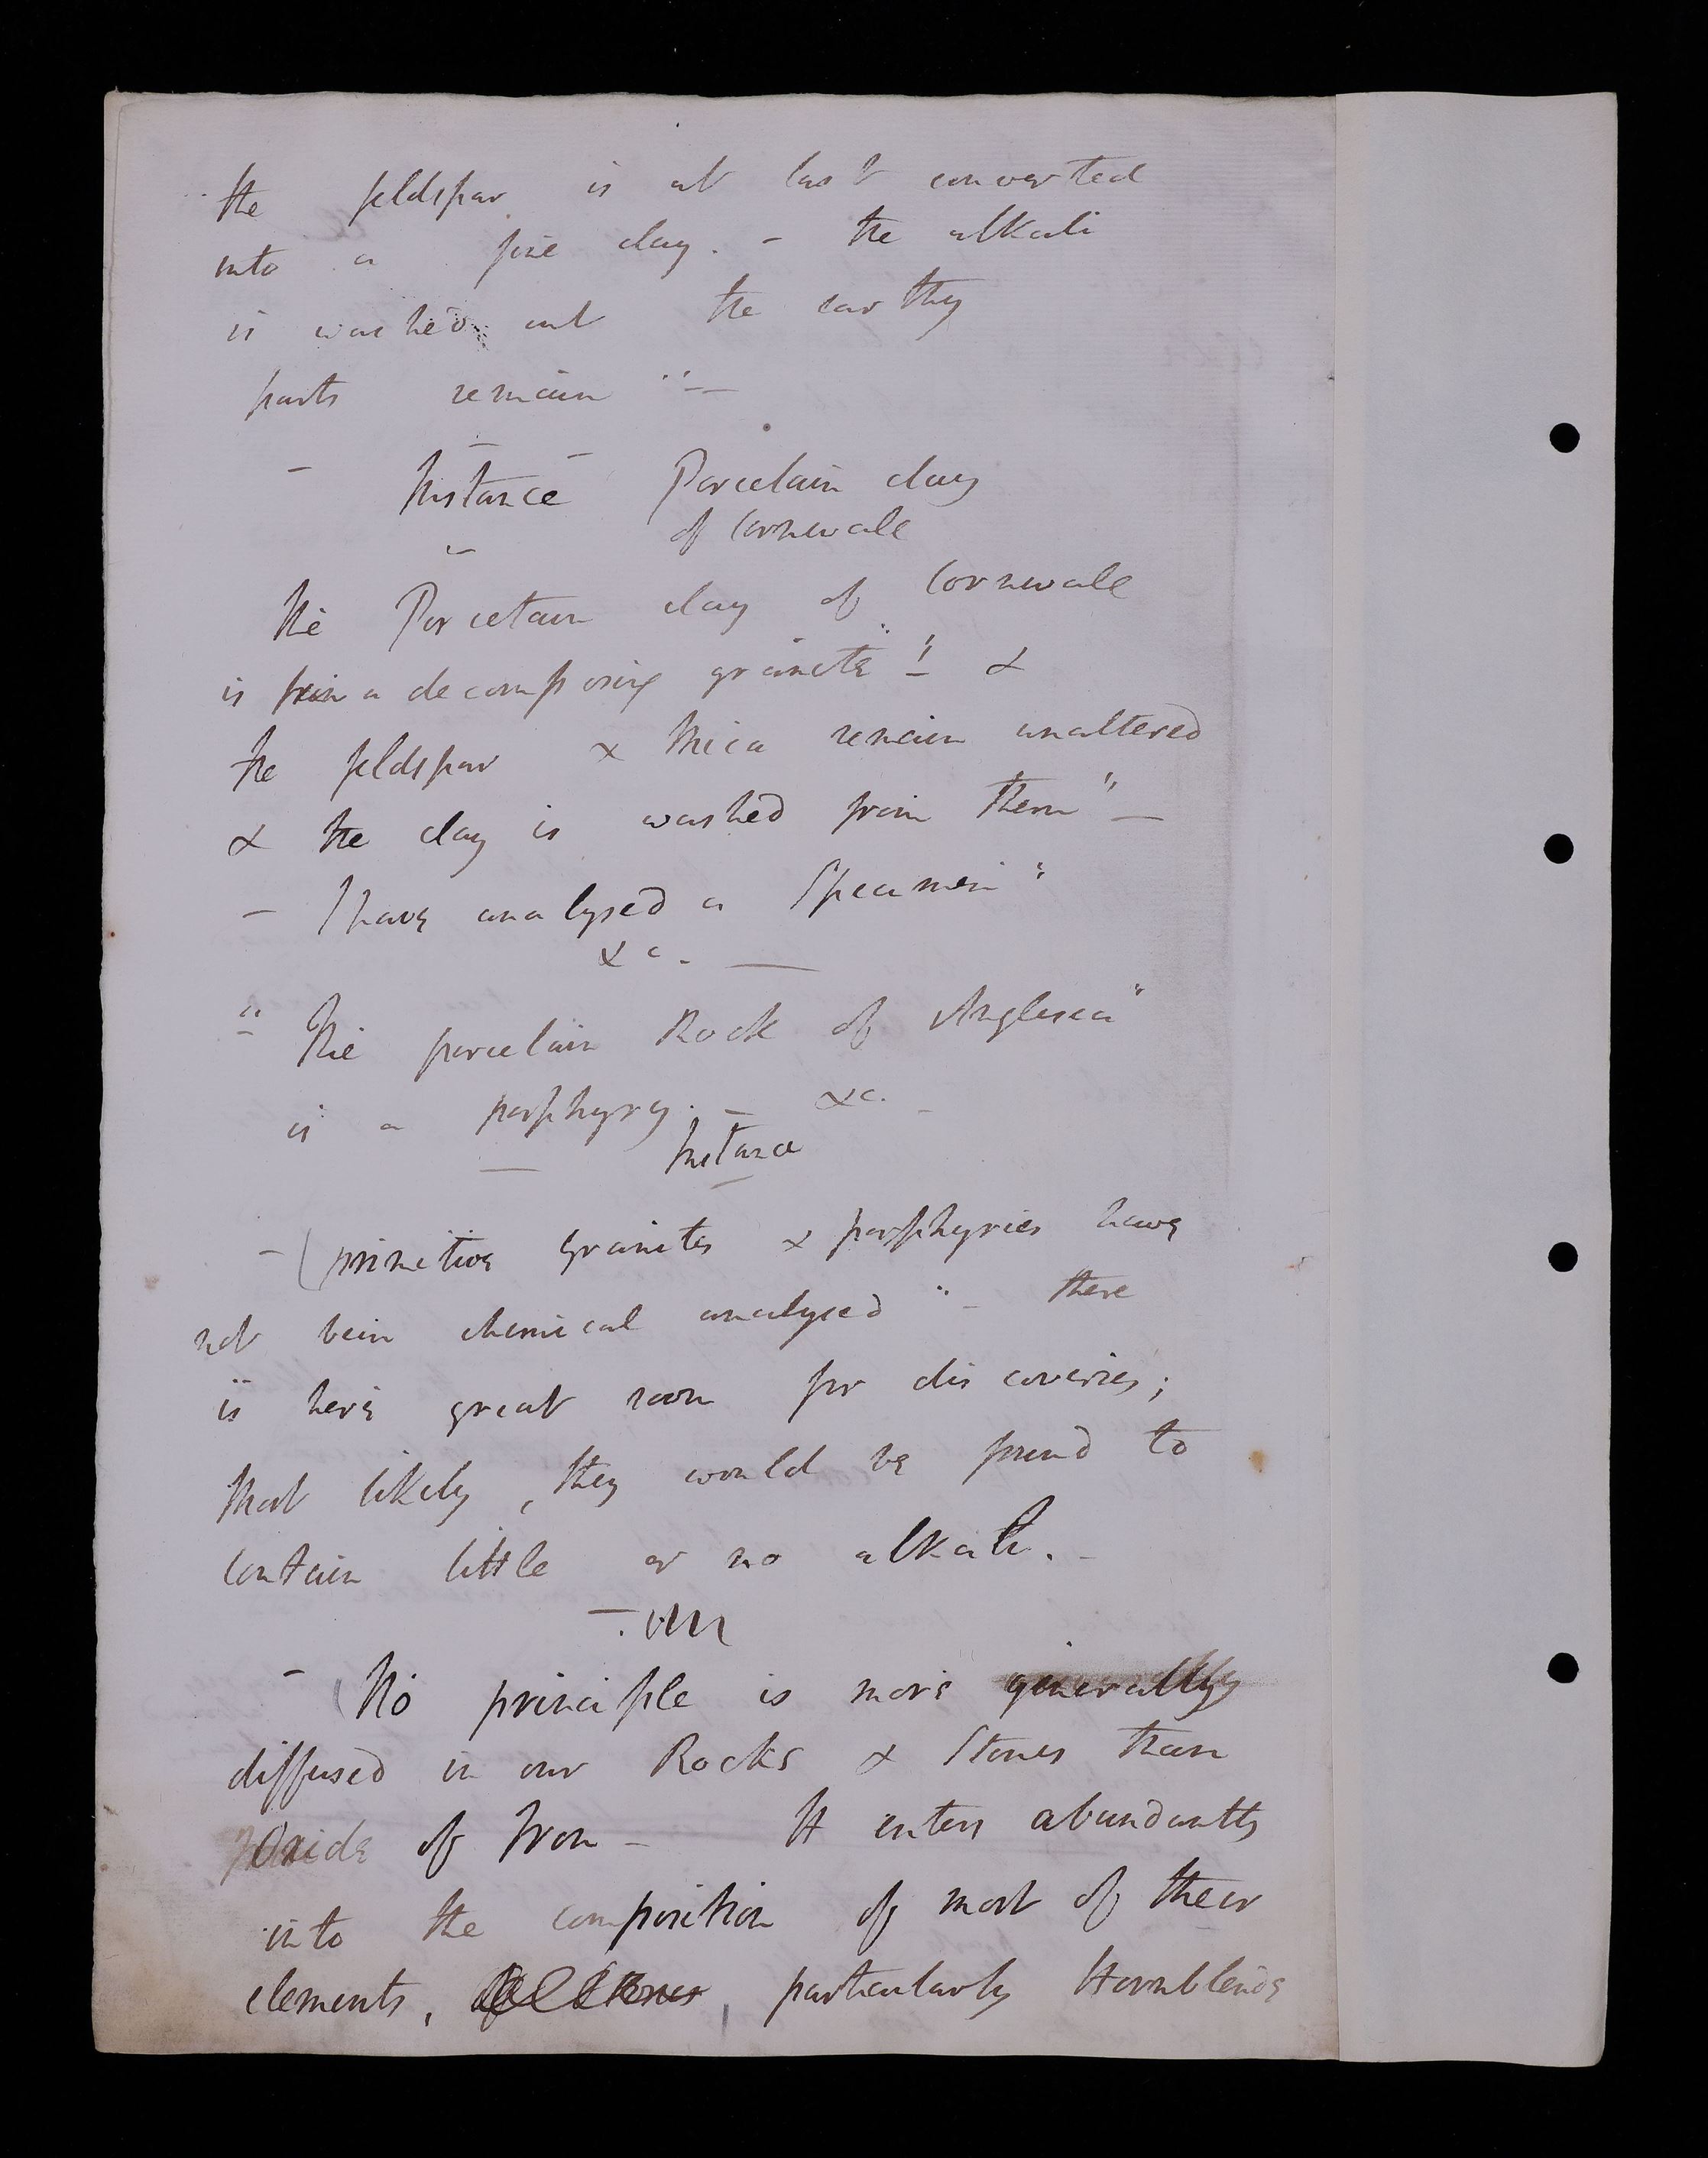 the feldspar is at last converted
into a fine clay. - the alkali
is washed out the earthy
parts remain " —
- Instance - Porcelain clay
of Cornwale
The Porcelain clay of Cornwale
is from a decomposing granite " - &
the feldspar & Mica remain unaltered
& the clay is washed from them " —
- I have analysed a Specimen "
&c. —
" The porcelain Rock of Anglesea "
is a porphyry. - &c. -
Instance
- (primitive granites & porphyries have
not bein chemical analysed " - there
is here great room for discoveries;
Most likely, they would be found to
contain little or no alkali. -
- (No principle is more generally
diffused in our Rocks & Stones than
Oxide of Iron - It enters abundantly
into the composition of most of their
elements, particularly Hornblende